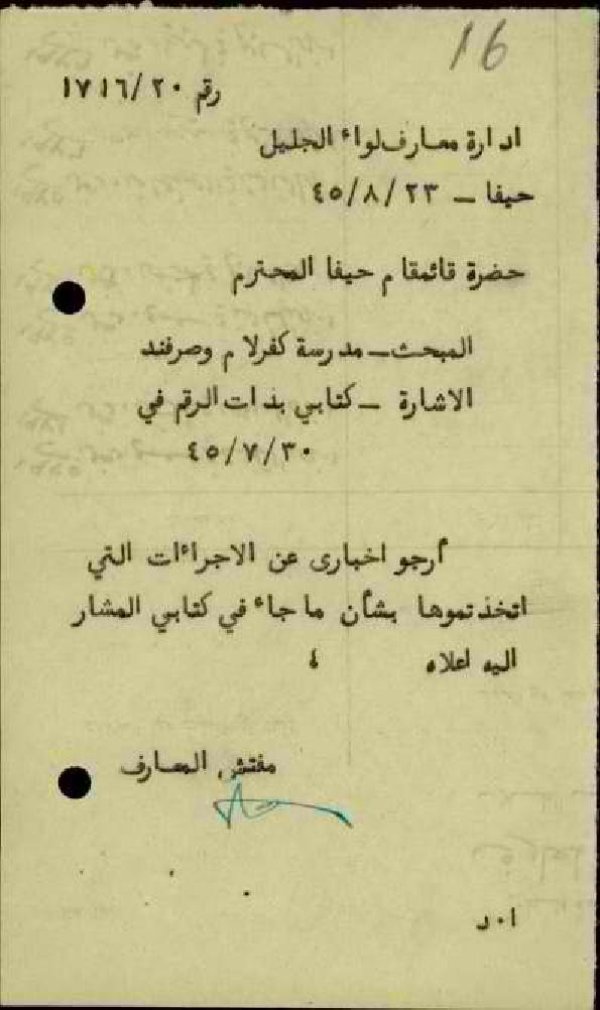 16
رقم ١٧١٦/٢٠
ادارة معارف لواء الجليل
حيفا – ٤٥/٨/٢٣
حضرة قائمقام حيفا المحترم
المبحث – مدرسة كفرلام وصرفند
الاشارة – كتابي بذات الرقم في
٤٥/٧/٣٠
أرجو اخبارى عن الاجراءات التي
اتخذتموها بشأن ما جاء في كتابي المشار
اليه اعلاه ؛
مفتش المعارف
ا٠د